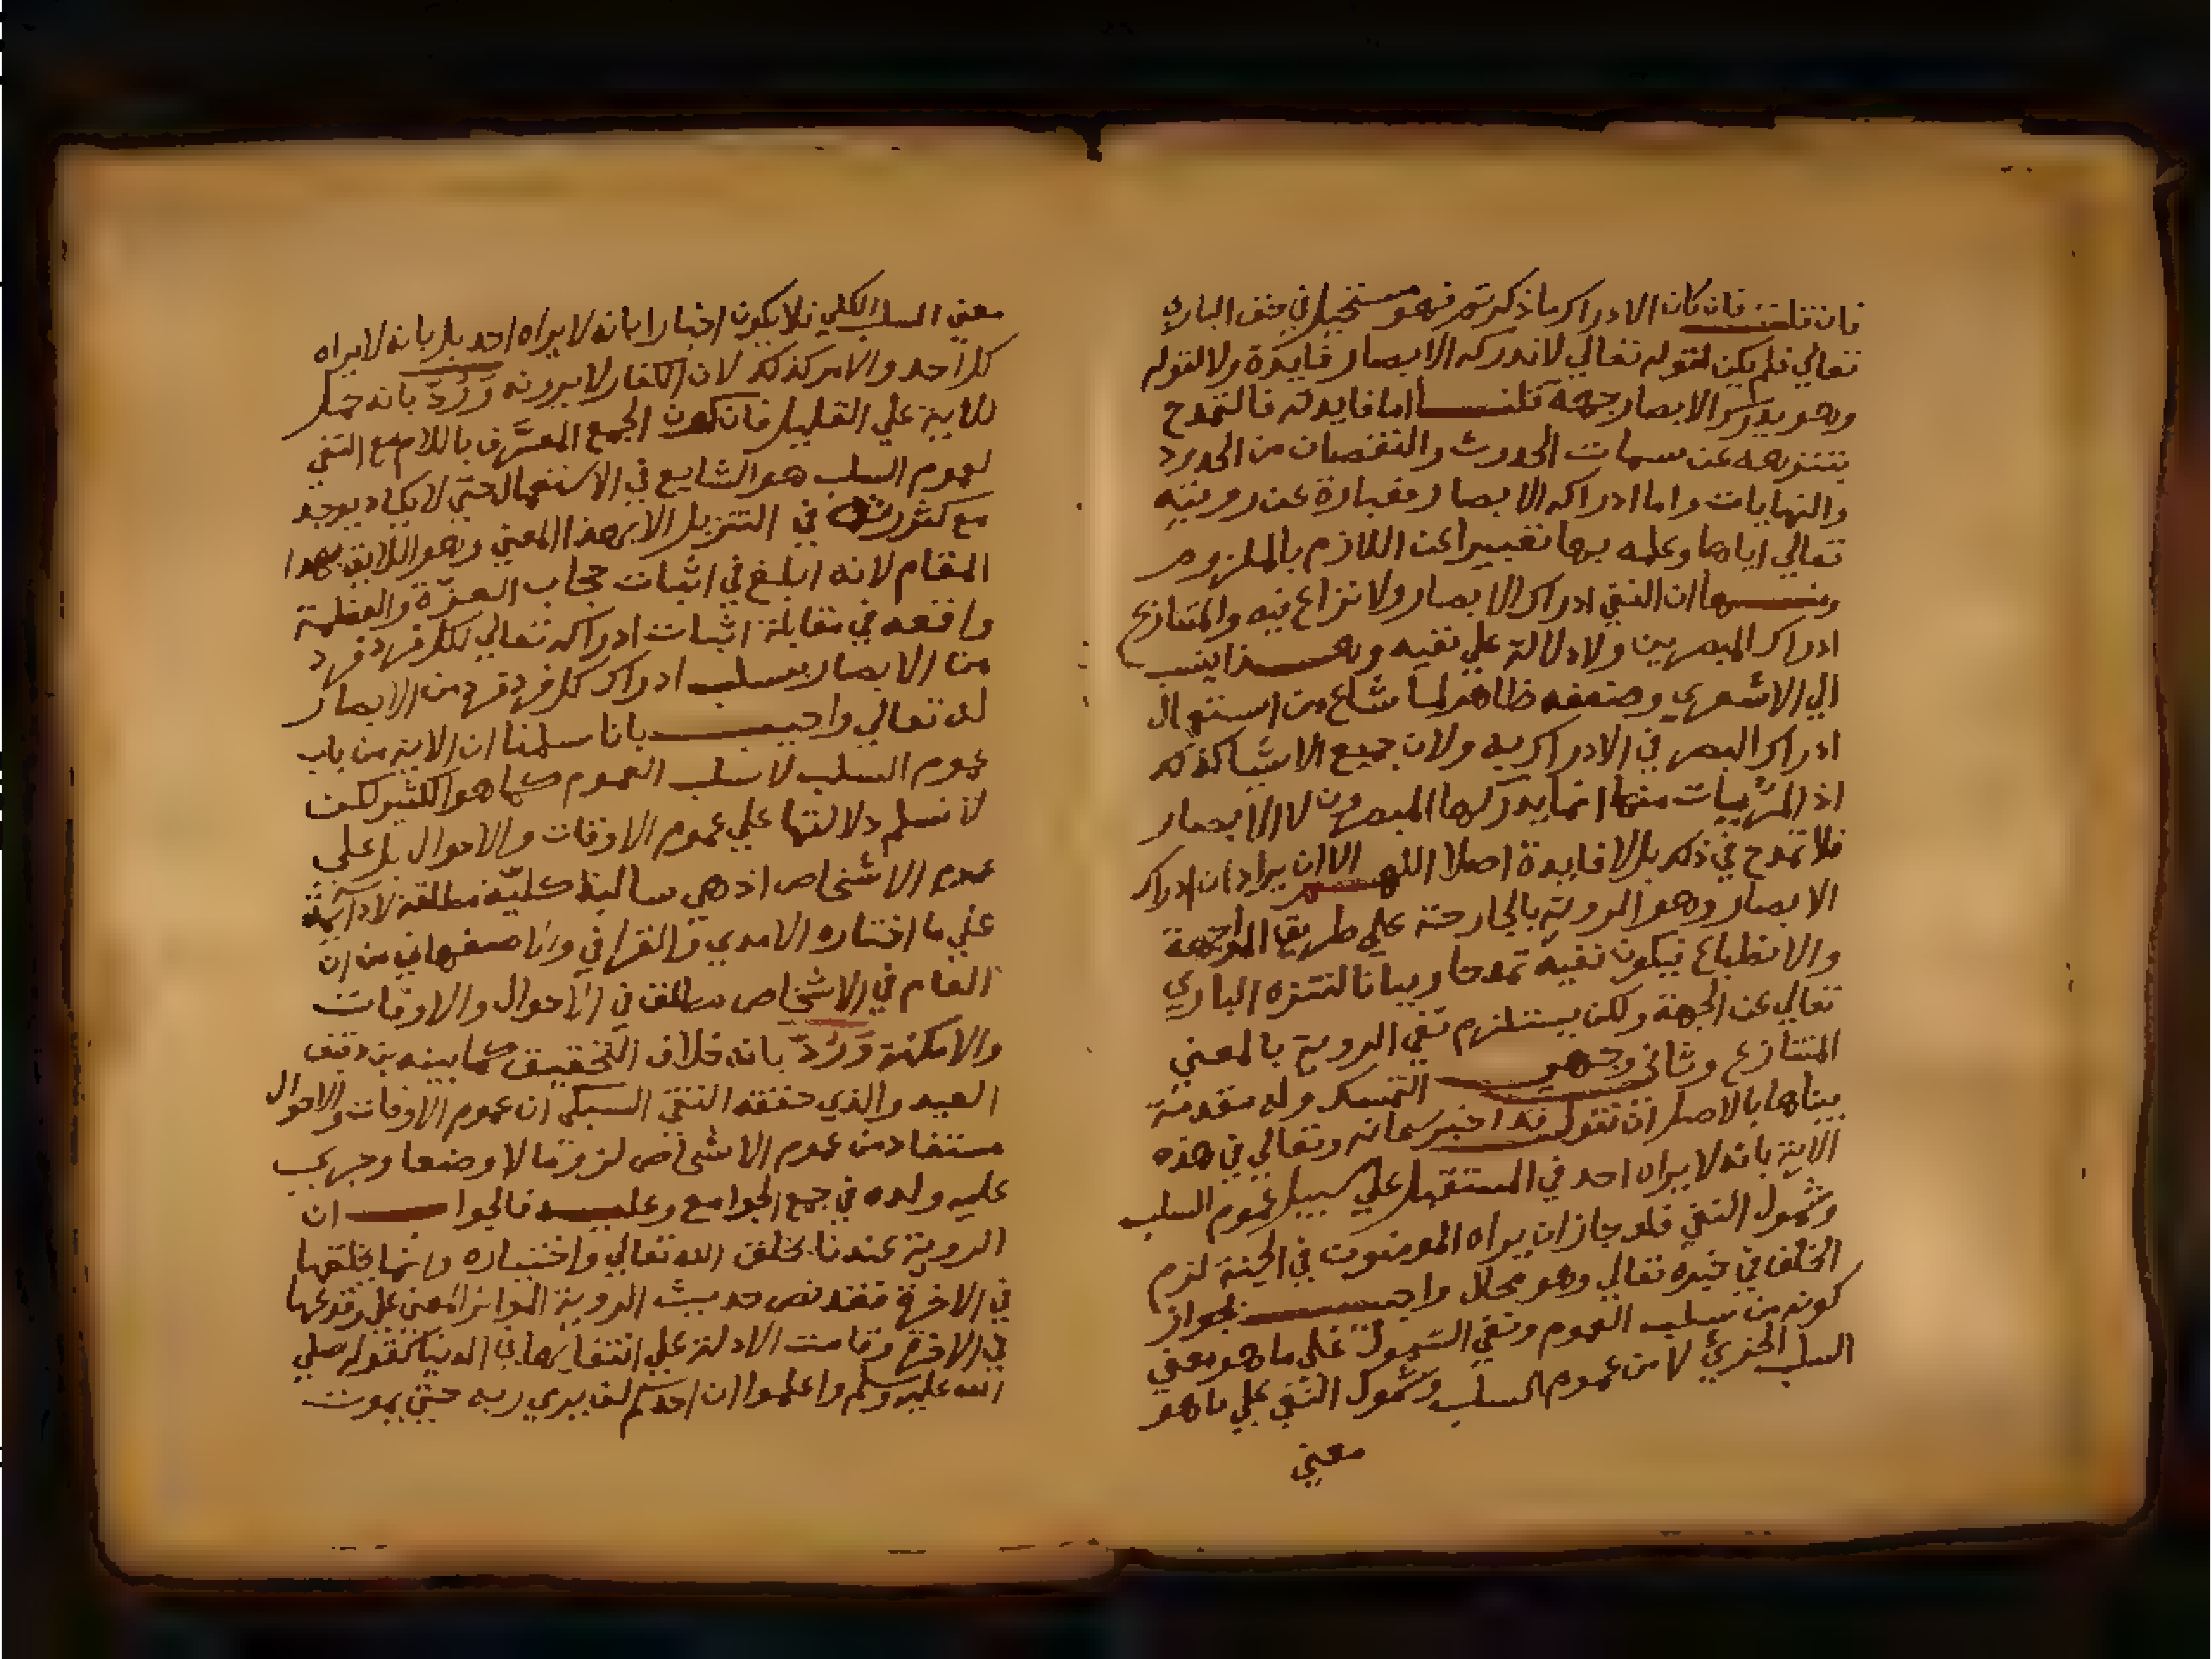 فان قلت فان كان الادراك ما ذكرتم فهو مستحيل في حق الباري
تعالي فلم يكن لقوله تعالي لا تدركه الابصار فايدة ولا لقوله
وهو يدرك الابصار جهة قلنا اما فايدته فالتمدح
بتنزيهه عن سمات الحدوث والنقصان من الحدود
والنهايات واما ادراكه الابصار فعبارة عن رويته
تعالي اياها وعلمه بها تعبيرا عن اللازم بالملزوم
ومنها ان المنفي ادراك الابصار ولا نزاع فيه والمتنازع
ادراك المبصرين ولا دلالة علي نفيه وهذا ينسب
الي الاشعري وضعفه ظاهر لما شاع من استعمال
ادراك البصر في الادراك به ولان جميع الاشيا كذلك
اذ المرئيات منها انما يدركها المبصرون لا الابصار
فلا تمدح في ذلك بل لا فايدة اصلا اللهم الا ان يراد ان ادراك
الابصار وهو الروية بالجارحة علي طريق المواجهة
والانطباع فيكون نفيه تمدحا وبيانا لتنزه الباري
تعالي عن الجهة ولكن يستلزم نفي الروية بالمعني
المتنازع وثاني وجهي التمسك وله مقدمة
بيناها بالاصل ان تقول قد اخبر سبحانه وتعالي في هذه
الاية بانه لا يراه احد في المستقبل علي سبيل عموم السلب
وشمول النفي فلو جاز ان يراه المومنون في الجنة لزم
الخلف في خبره تعالي وهو محال واجيب بجواز
كونه من سلب العموم ونفي الشمول علي ما هو معني
السلب الجزئي لا من عموم السلب وشمول النفي علي ما هو
معني
معني السلب الكلي فلا يكون اخبارا بانه لا يراه احد بل بانه لا يراه
كل احد والامر كذلك لان الكفار لا يرونه وَرُدّ بانه حمل
للاية علي القليل فان كون الجمع المعرّف باللام مع النفي
لعموم السلب هو الشايع في الاستعمال حتي لا يكاد يوجد
مع كثرته في التنزيل الا بهذا المعني وهو اللايق بهذا
المقام لانه ابلغ في اثبات حجاب العزّة والعظمة
واقعه في مقابلة اثبات ادراكه تعالي لكل فرد فرد
من الابصار بسلب ادراك كل فرد فرد من الابصار
له تعالي واجيب بانا سلمنا ان الاية من باب
عموم السلب لا سلب العموم كما هو الكثير لكن
لا نسلم دلالتها علي عموم الاوقات والاحوال بل علي
عموم الاشخاص اذ هي سالبة كليّة مطلقة لا دائمة
علي ما اختاره الامدي والقرافي والاصفهاني من ان
العام في الاشخاص مطلق في الاحوال والاوقات
والامكنة وَرُدّ بانه خلاف التحقيق كما بينه بن دقيق
العيد والذي حققه التقي السبكي ان عموم الاوقات والاحوال
مستفاد من عموم الاشخاص لزوما لا وضعا وجري
عليه ولده في جمع الجوامع وعليه فالجواب ان
الروية عندنا بخلق الله تعالي واختياره وانما يخلقها
في الاخرة فقد نص حديث الروية المتواتر المعني علي وقوعها
في الاخرة وقامت الادلة علي انتفايها في الدنيا كقوله صلي
الله عليه وسلم واعلموا ان احدكم لن يري ربه حتي يموت